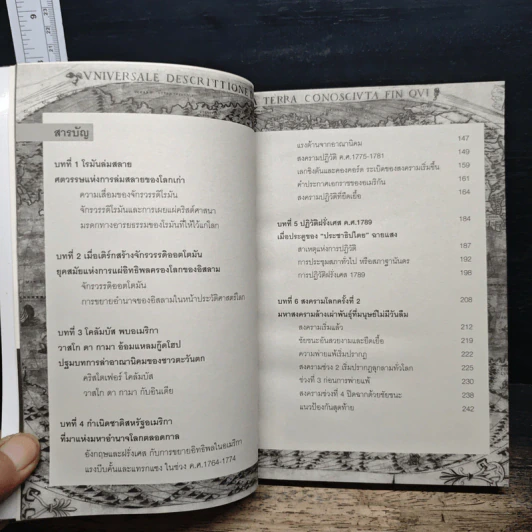 VNIVERSALE DESCRITTIONE
สารบัญ
บทที่ 1 โรมันล่มสลาย
ศตวรรษแห่งการล่มสลายของโลกเก่า
ความเสื่อมของจักรวรรดิโรมัน
จักรวรรดิโรมันและการเผยแผ่คริสต์ศาสนา
มรดกทางอารยธรรมของโรมันที่ให้ไว้แก่โลก
บทที่ 2 เมื่อเติร์กสร้างจักรวรรดิออตโตมัน
ยุคสมัยแห่งการแผ่อิทธิพลครองโลกของอิสลาม
จักรวรรดิออตโตมัน
การขยายอำนาจของอิสลามในหน้าประวัติศาสตร์โลก
บทที่ 3 โคลัมบัส พบอเมริกา
วาสโก ดา กามา อ้อมแหลมกู๊ดโฮป
ปฐมบทการล่าอาณานิคมของชาวตะวันตก
คริสโตเฟอร์ โคลัมบัส
วาสโก ดา กามา กับอินเดีย
บทที่ 4 กำเนิดชาติสหรัฐอเมริกา
ที่มาแห่งมหาอำนาจโลกตลอดกาล
อังกฤษและฝรั่งเศส กับการขยายอิทธิพลในอเมริกา
แรงบีบคั้นและแทรกแซง ในช่วง ค.ศ.1764-1774
TERRA CONOSCIVTA FIN QVI
แรงต้านจากอาณานิคม 147
สงครามปฏิวัติ ค.ศ.1775-1781 149
เลกซิงตันและคองคอร์ด ระเบิดของสงครามเริ่มขึ้น 159
คำประกาศเอกราชของอเมริกัน 161
สงครามปฏิวัติที่ยืดเยื้อ 164
บทที่ 5 ปฏิวัติฝรั่งเศส ค.ศ.1789 184
เมื่อประตูของ "ประชาธิปไตย" ฉายแสง
สาเหตุแห่งการปฏิวัติ 187
การประชุมสภาทั่วไป หรือสภาฐานันดร 192
การปฏิวัติฝรั่งเศส 1789 198
บทที่ 6 สงครามโลกครั้งที่ 2 208
มหาสงครามล้างเผ่าพันธุ์ที่มนุษย์ไม่มีวันลืม
สงครามเริ่มแล้ว 212
ชัยชนะอันสวยงามและยืดเยื้อ 219
ความพ่ายแพ้เริ่มปรากฏ 222
สงครามช่วง 2 เริ่มปรากฏลุกลามทั่วโลก 225
ช่วงที่ 3 ก่อนการพ่ายแพ้ 230
สงครามช่วงที่ 4 ปิดฉากด้วยชัยชนะ 238
แนวป้องกันสุดท้าย 242